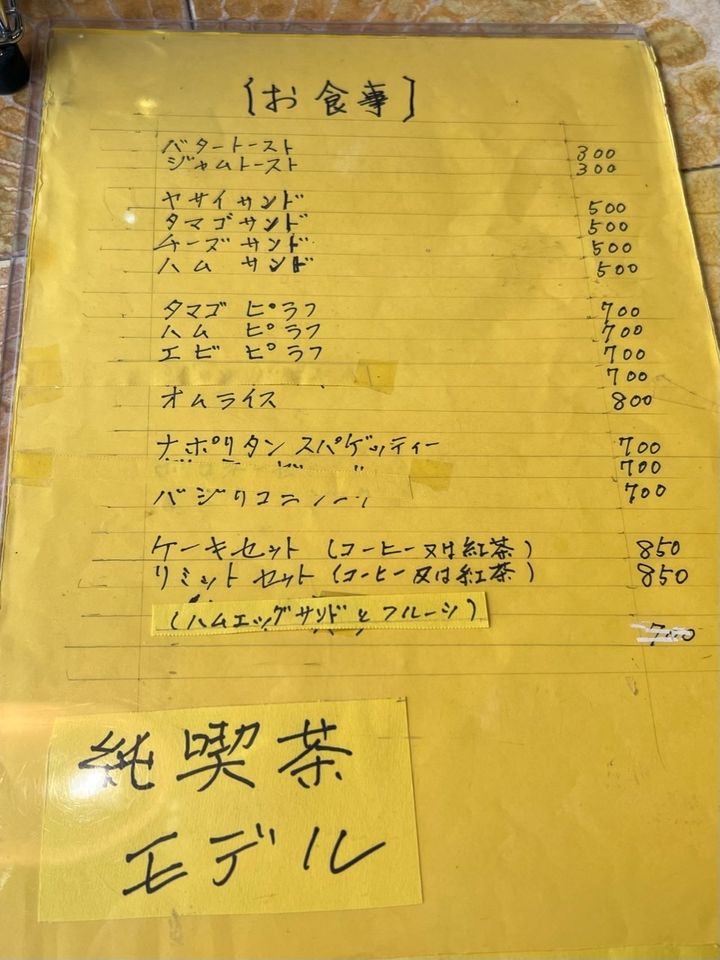 [お食事]
バタートースト 300
ジャムトースト 300
ヤサイサンド 500
タマゴサンド 500
チーズサンド 500
ハムサンド 500
タマゴピラフ 700
ハムピラフ 700
エビピラフ 700
700
オムライス 800
ナポリタンスパゲッティー 700
700
バジリコ 700
ケーキセット (コーヒー又は紅茶) 850
リミットセット (コーヒー又は紅茶) 850
(ハムエッグサンドとフルーツ)
700
純喫茶
モデル